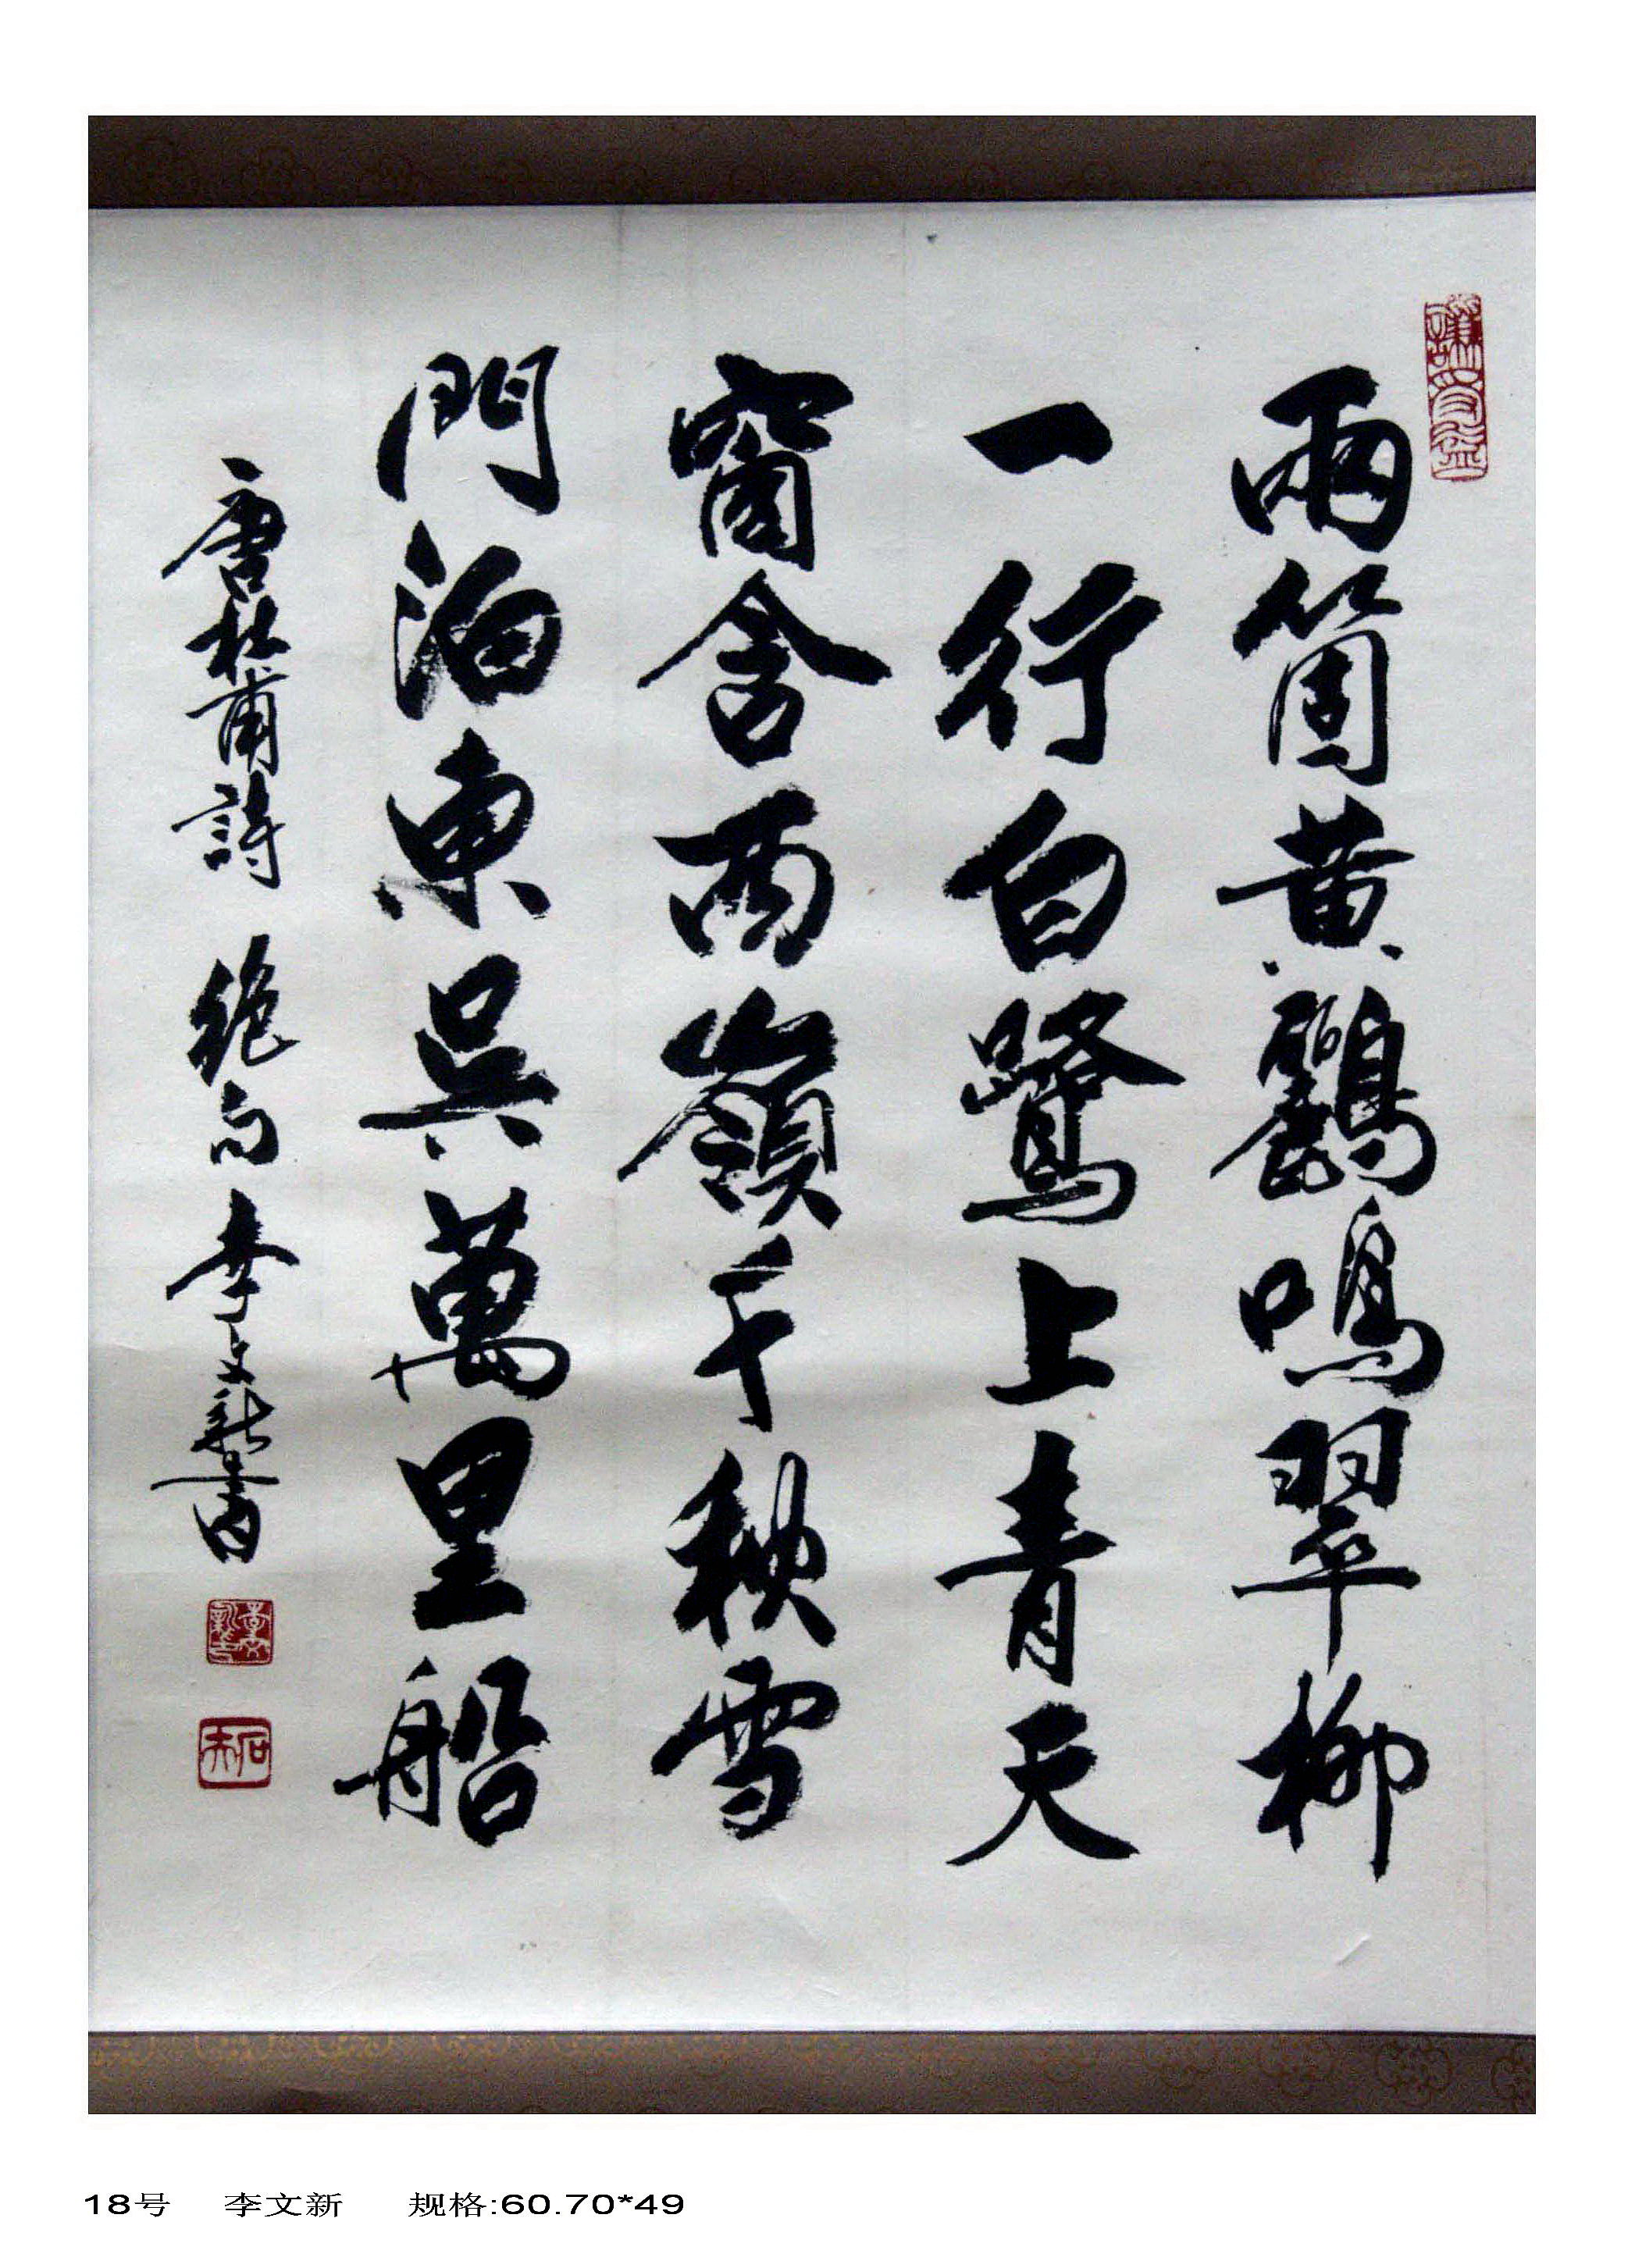 兩箇黄鸝鳴翠柳
一行白鷺上青天
窗含西嶺千秋雪
門泊東吳萬里船
唐杜甫詩 絶句 李文新書
18号 李文新 规格:60.70*49